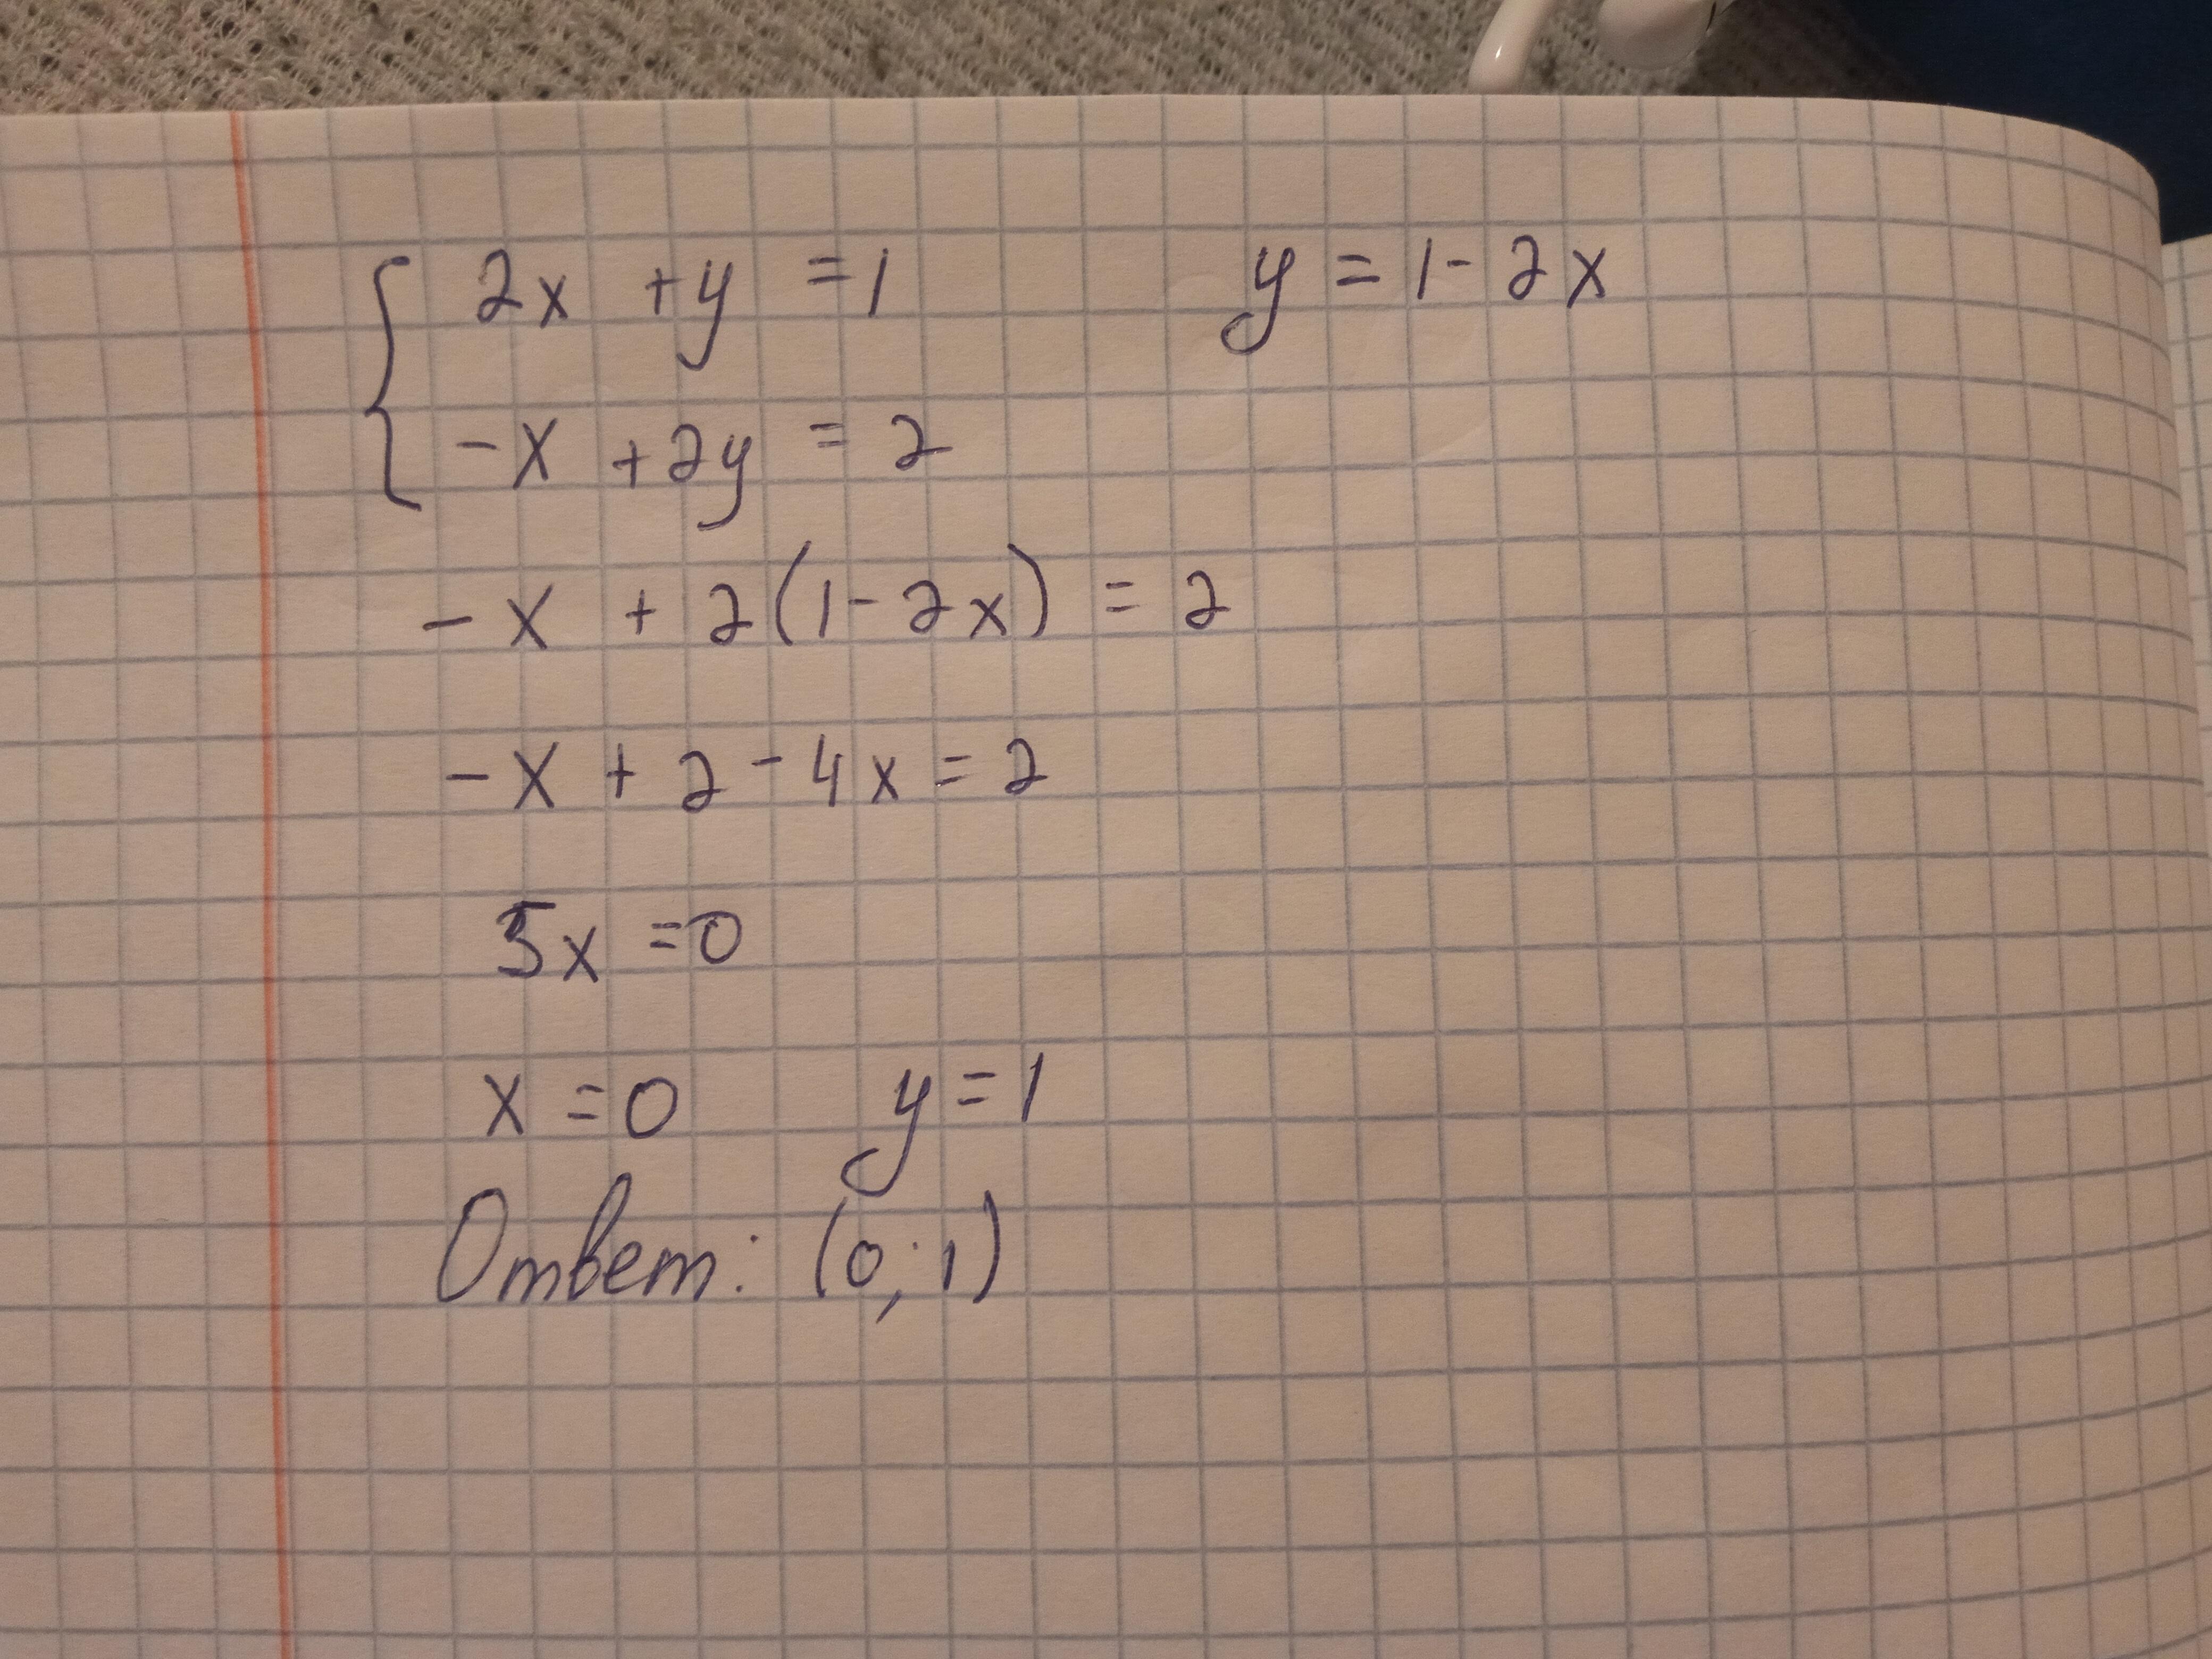 2x + y = 1 y = 1 - 2x
-x + 2y = 2
-x + 2(1 - 2x) = 2
-x + 2 - 4x = 2
5x = 0
x = 0 y = 1
Ответ: (0; 1)